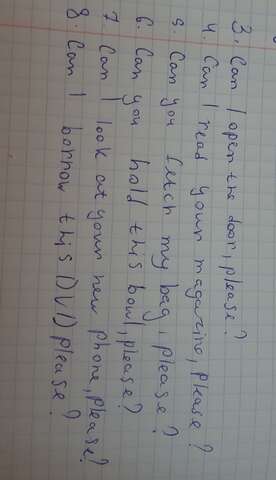 3. Can I open the door, please?
4. Can I read your magazine, please?
5. Can you fetch my bag, please?
6. Can you hold this bowl, please?
7. Can I look at your new phone, please?
8. Can I borrow this DVD please?